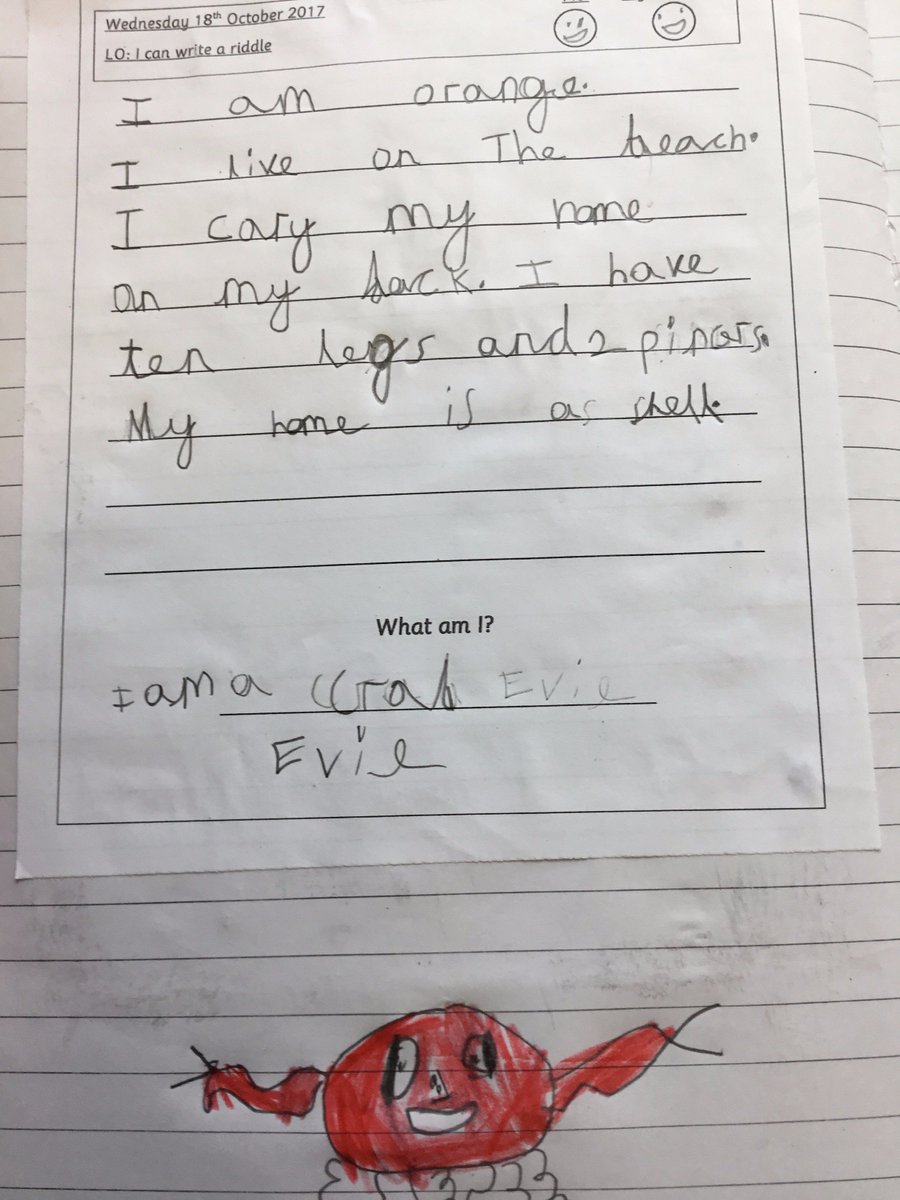 Wednesday 18th October 2017
LO: I can write a riddle
I am orange.
I live on The beach.
I cary my home
on my back. I have
ten legs and 2 pincrs.
My home is as shell.
What am I?
I am a crab Evie
Evie